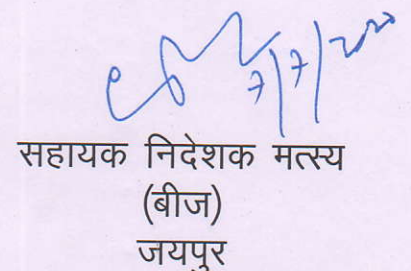 7/7/2020
सहायक निदेशक मत्स्य
(बीज)
जयपुर